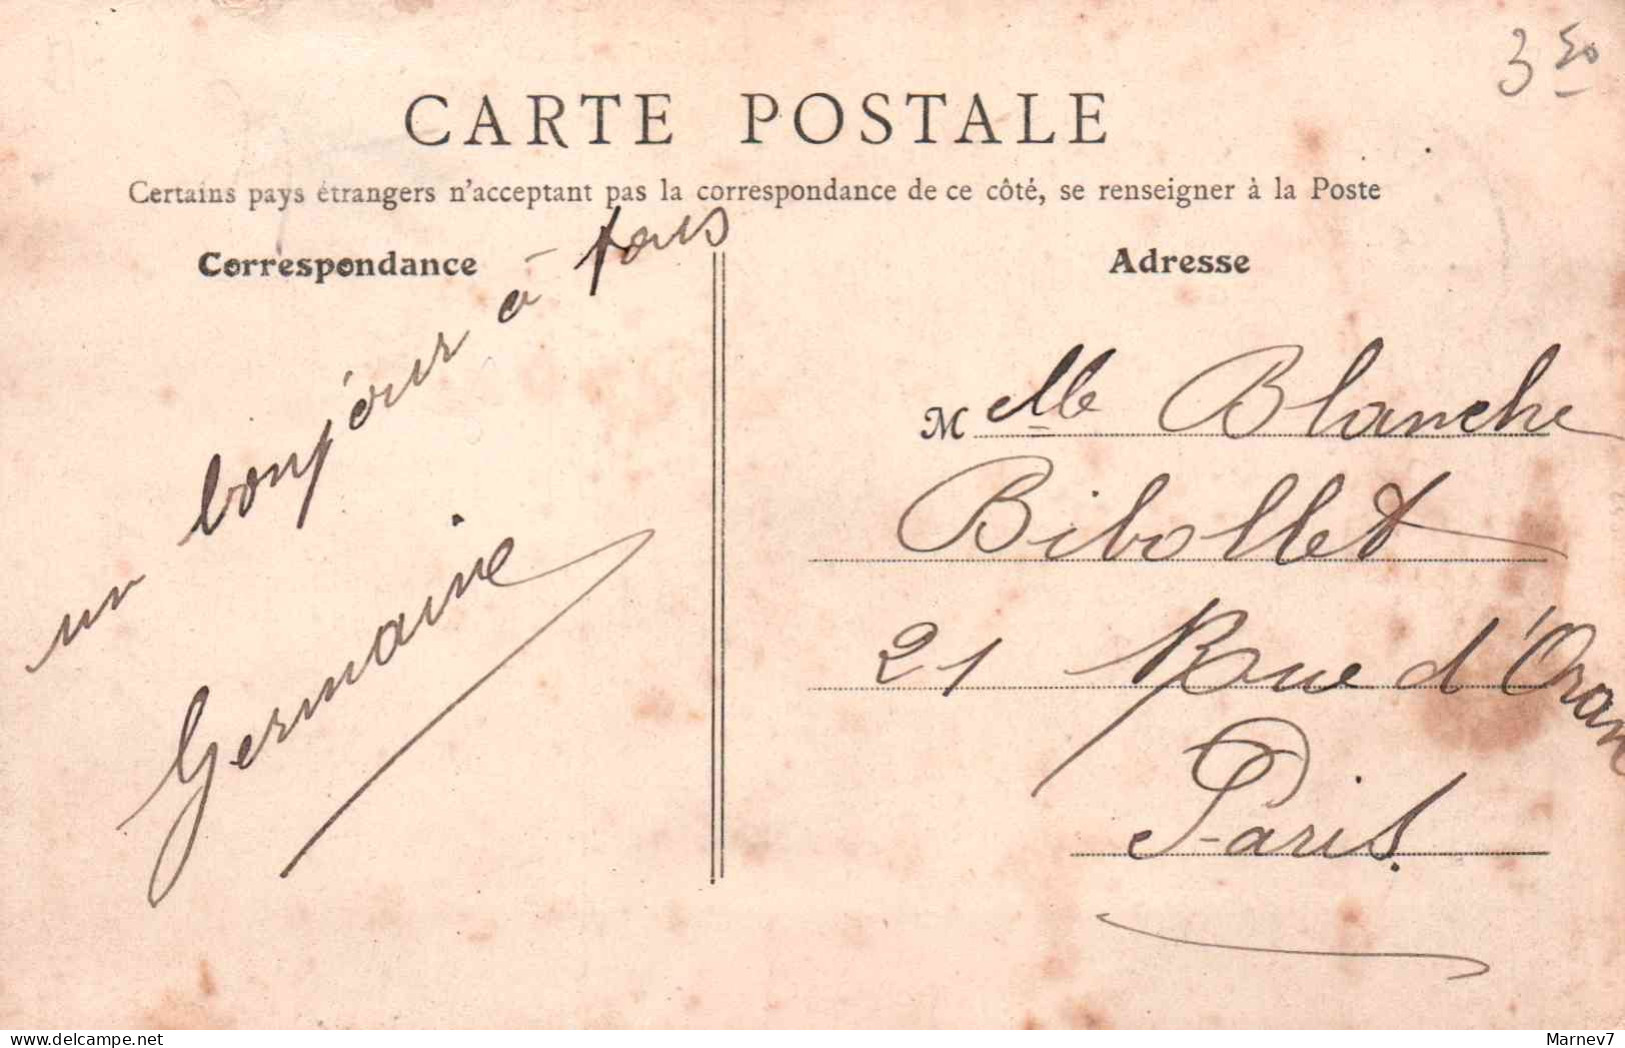 3 50
CARTE POSTALE
Certains pays étrangers n'acceptant pas la correspondance de ce côté, se renseigner à la Poste
Correspondance
un bonjour à tous
Germaine
Adresse
Melle Blanche
Bibollet
21 Rue d'Oran
Paris.
delcampe.net
Marnev7